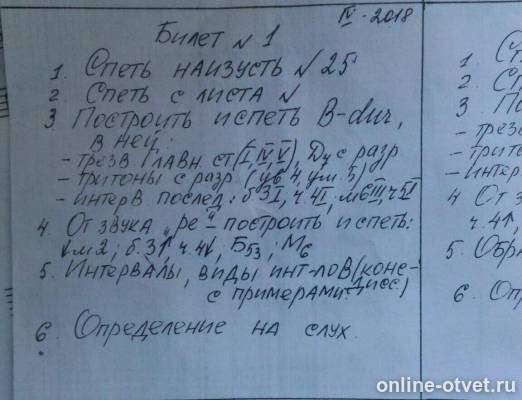 IV - 2018
Билет N 1
1. Спеть наизусть N 25
2 Спеть с листа N
3 Построить и спеть B-dur,
в ней:
- трезв главн. ст. (I, IV, V), D₄ с разр
- тритоны с разр (ув 4, ум. 5)
- интерв послед: б.3I, ч.4I; м6III; ч5I
4. От звука „ре" - построить и спеть:
↓м2; б.3↑ ч.4↓, Б53; М6
5. Интервалы, виды инт-лов (конс-
дисс.)
с примерами.
6. Определение на слух.
1 Сп
2 Сп
3 По
- трез
- тритон
- интер
4 От зв
ч.4↑,
5. Обра
6. Опр
online-otvet.ru